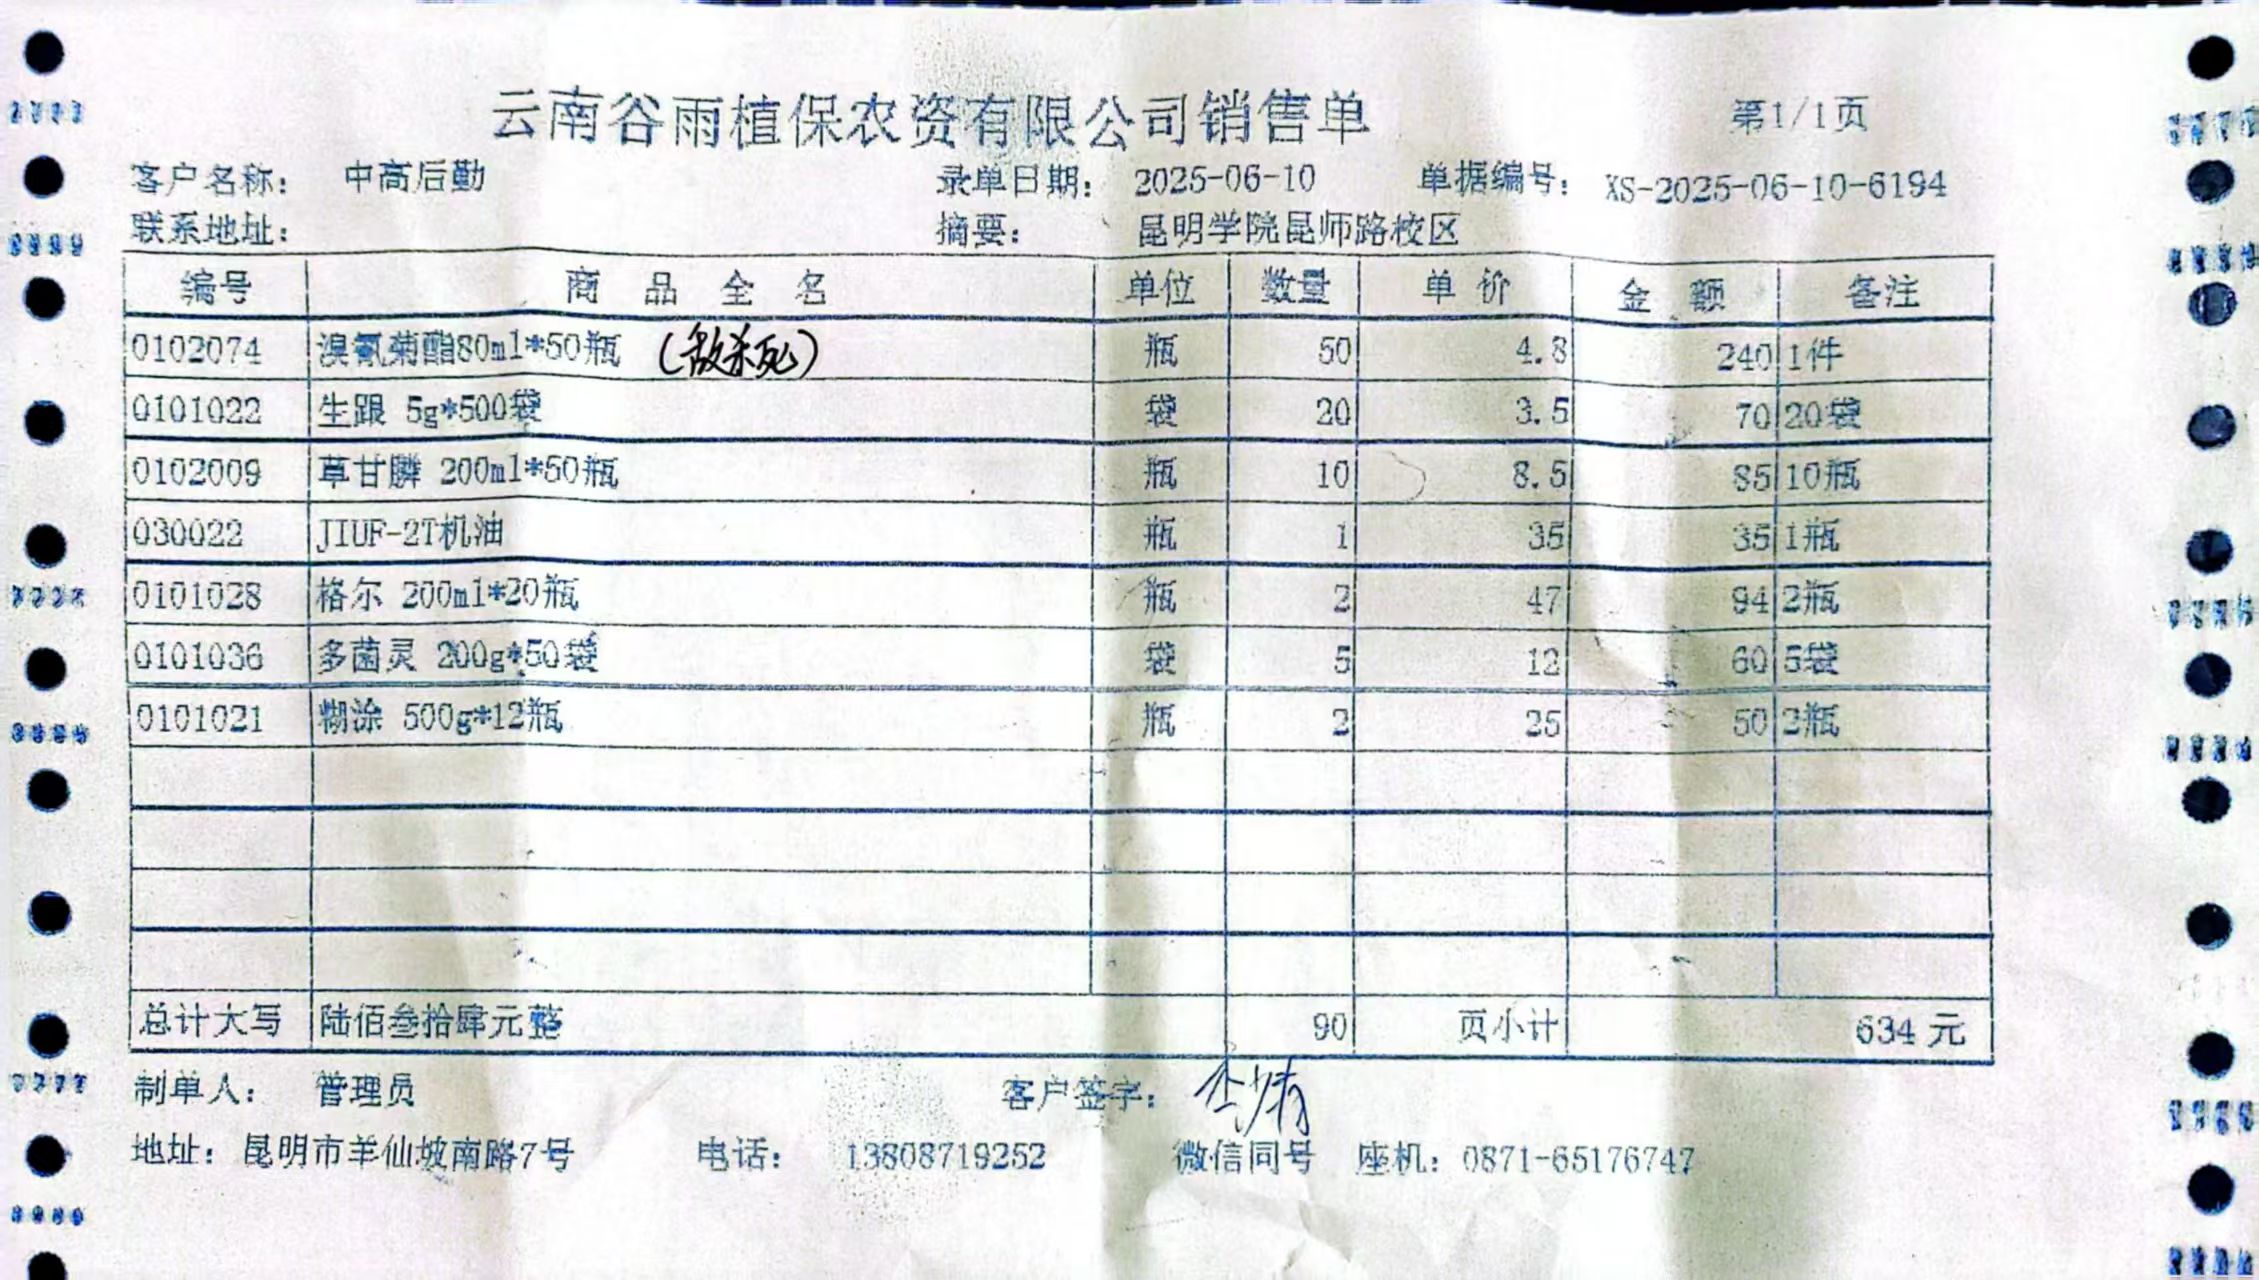 云南谷雨植保农资有限公司销售单 第1/1页
客户名称： 中高后勤 录单日期： 2025-06-10 单据编号： XS-2025-06-10-6194
联系地址： 摘要： 昆明学院昆师路校区
编号 商品全名 单位 数量 单价 金额 备注
0102074 溴氰菊酯80ml*50瓶 (敌杀死) 瓶 50 4.8 240 1件
0101022 生跟 5g*500袋 袋 20 3.5 70 20袋
0102009 草甘膦 200ml*50瓶 瓶 10 8.5 85 10瓶
030022 JIUF-2T机油 瓶 1 35 35 1瓶
0101028 格尔 200ml*20瓶 瓶 2 47 94 2瓶
0101036 多菌灵 200g*50袋 袋 5 12 60 5袋
0101021 糊涂 500g*12瓶 瓶 2 25 50 2瓶
总计大写 陆佰叁拾肆元整 90 页小计 634 元
制单人： 管理员 客户签字：
地址：昆明市羊仙坡南路7号 电话： 13808719252 微信同号 座机：0871-65176747